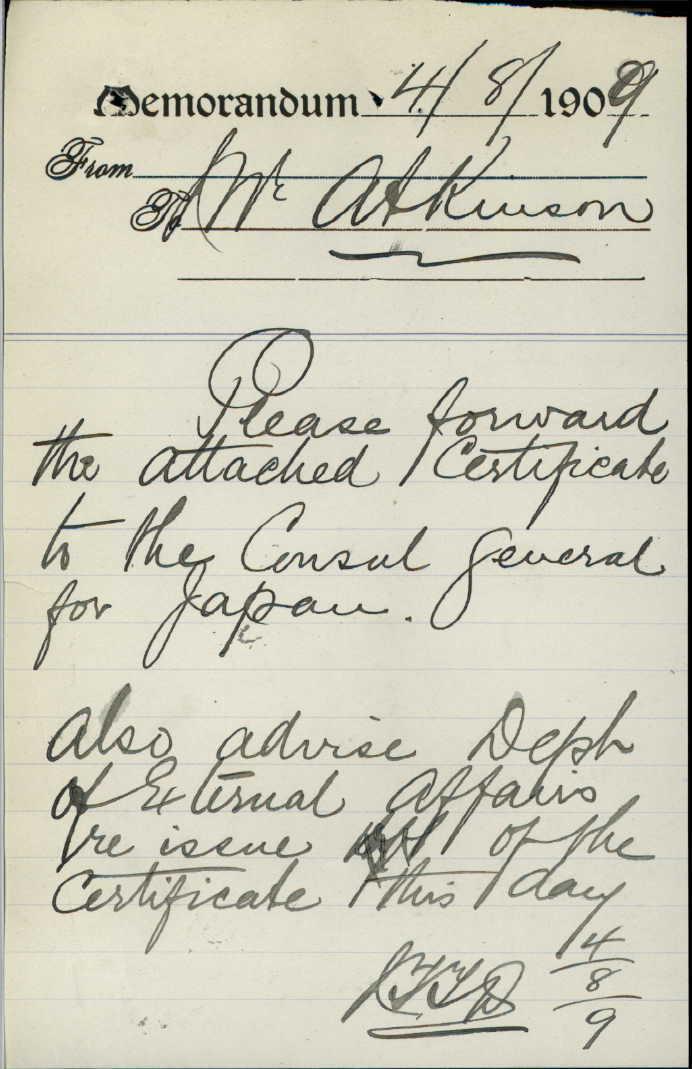 Memorandum 4/8/1909
From
To Mr Atkinson
Please forward
the attached Certificate
to the Consul General
for Japan.
Also advise Dept
of External Affairs
re issue of the
Certificate this day
4
8
9